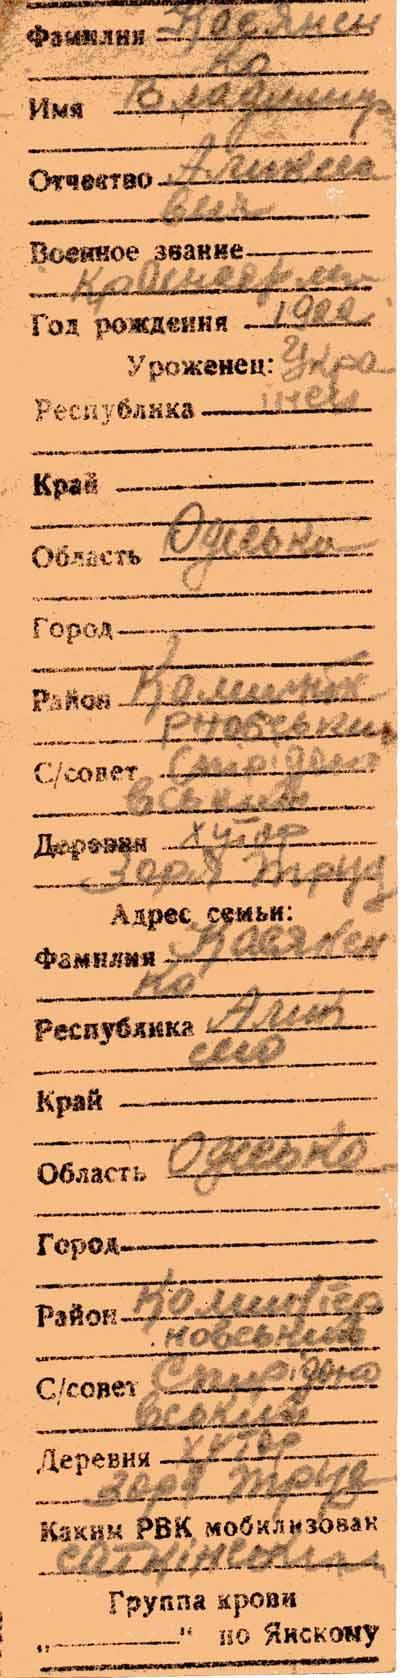 Фамилия Касянен
ко
Имя Владимир
Отчество Аликсеа
вич
Военное звание
Красноарм
Год рождения 1922
Уроженец: Укра
Республика їнец
Край
Область Одеська
Город
Район Каминт
рновський
С/совет Спирідоно
вський
Деревня хутор
Заря Труд
Адрес семьи:
Фамилия Касянен
ко
Республика
Край
Область Одеська
Город
Район Коминтер
новський
С/совет Спирідоно
вський
Деревня хутор
Заря Труд
Каким РВК мобилизован
Группа крови
„ “ по Янскому